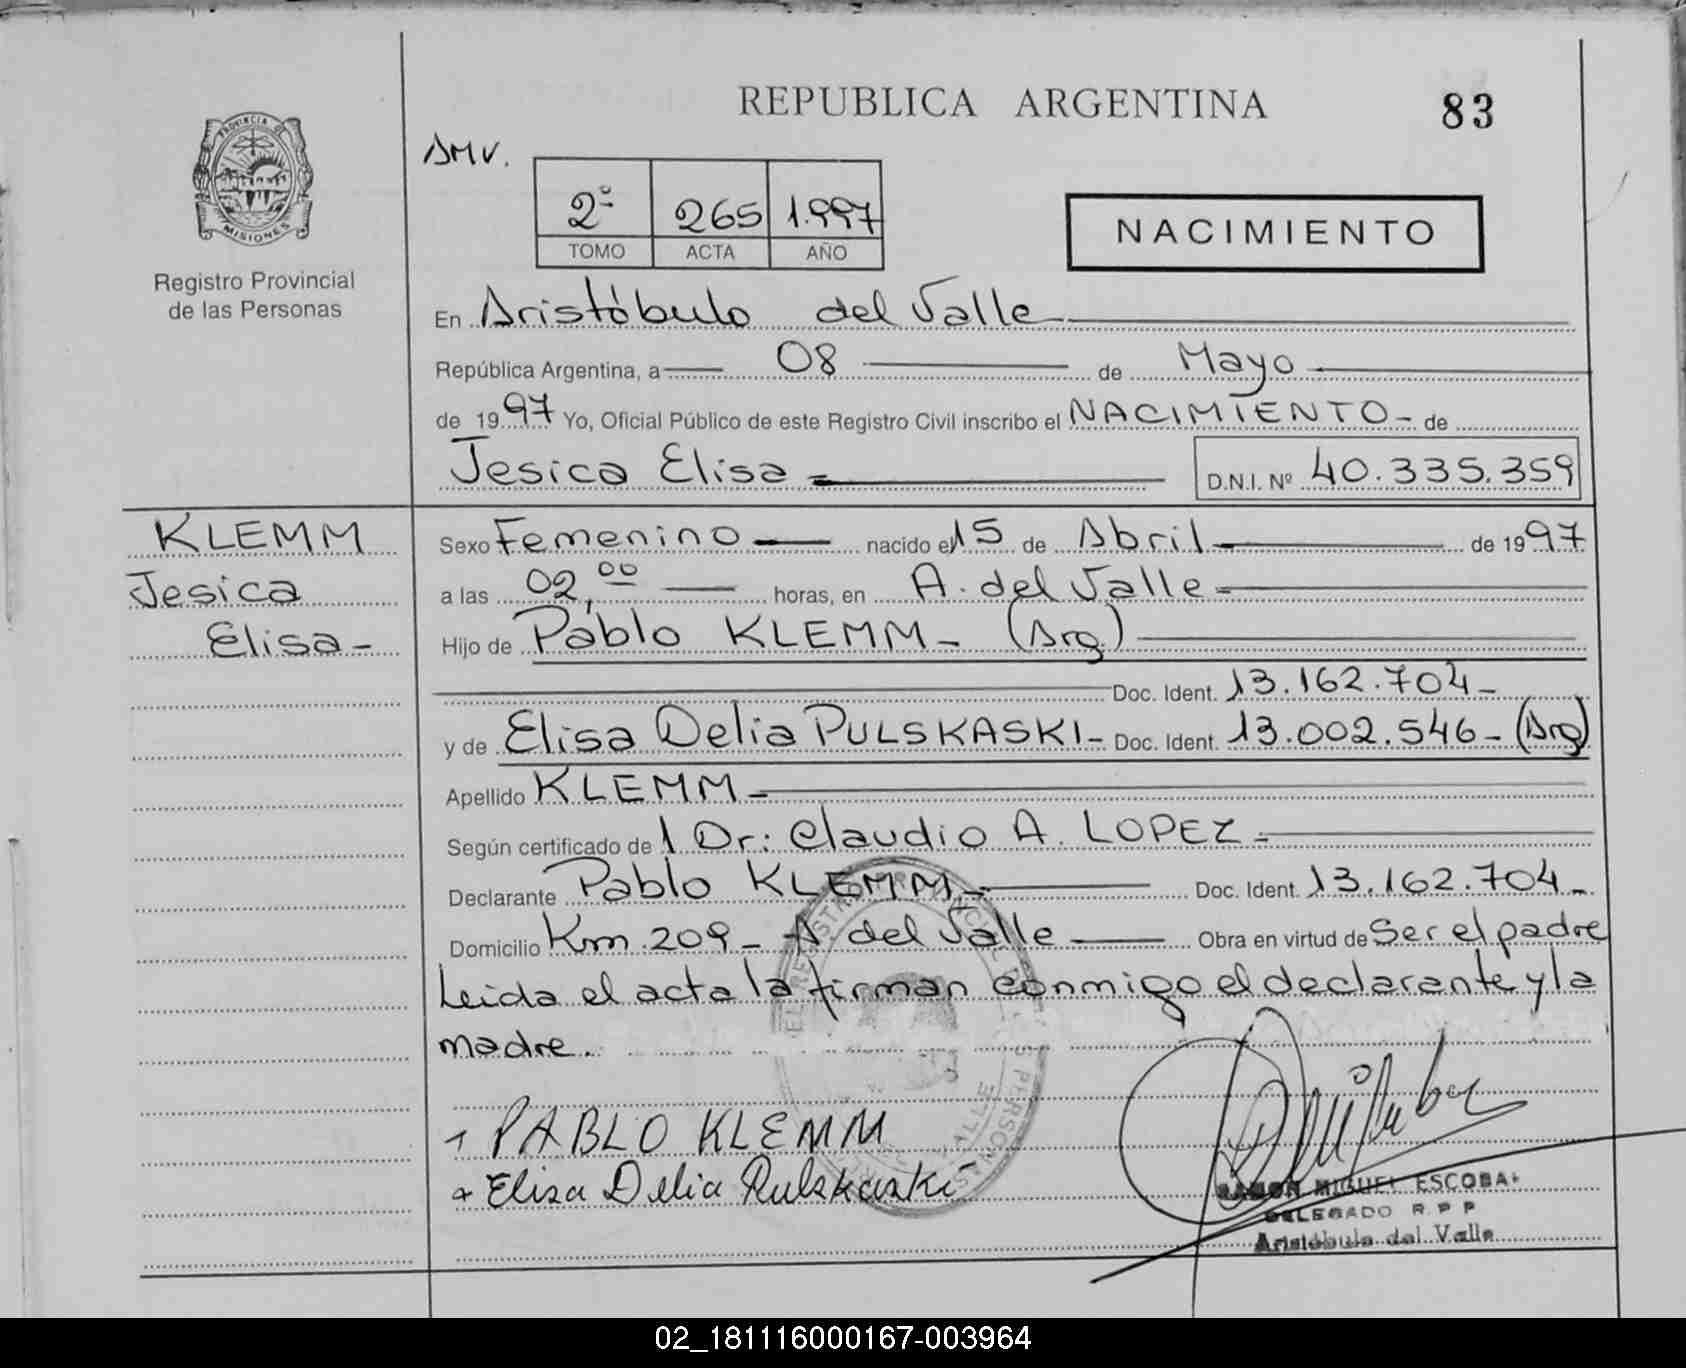 REPUBLICA ARGENTINA
83
PROVINCIA DE
MISIONES
Registro Provincial
de las Personas
AMV.
2º 265 1.997
TOMO ACTA AÑO
NACIMIENTO
En Aristóbulo del Valle
República Argentina, a 08 de Mayo
de 1997 Yo, Oficial Público de este Registro Civil inscribo el NACIMIENTO - de
Jesica Elisa D.N.I. Nº 40.335.359
KLEMM
Jesica
Elisa-
Sexo Femenino nacido el 15 de Abril de 1997
a las 02,00 horas, en A. del Valle
Hijo de Pablo KLEMM - (Arg.)
Doc. Ident. 13.162.704-
y de Elisa Delia PULSKASKI- Doc. Ident. 13.002.546- (Arg)
Apellido KLEMM
Según certificado de l Dr: Claudio A. LOPEZ
Declarante Pablo KLEMM Doc. Ident. 13.162.704-
Domicilio Km 209- A del Valle Obra en virtud de Ser el padre
Leida el acta la firman conmigo el declarante y la
madre.
PABLO KLEMM
Elisa Delia Pulskaski
RAMON MIGUEL ESCOBAR
DELEGADO R.P.P
Aristóbulo del Valle
02_181116000167-003964